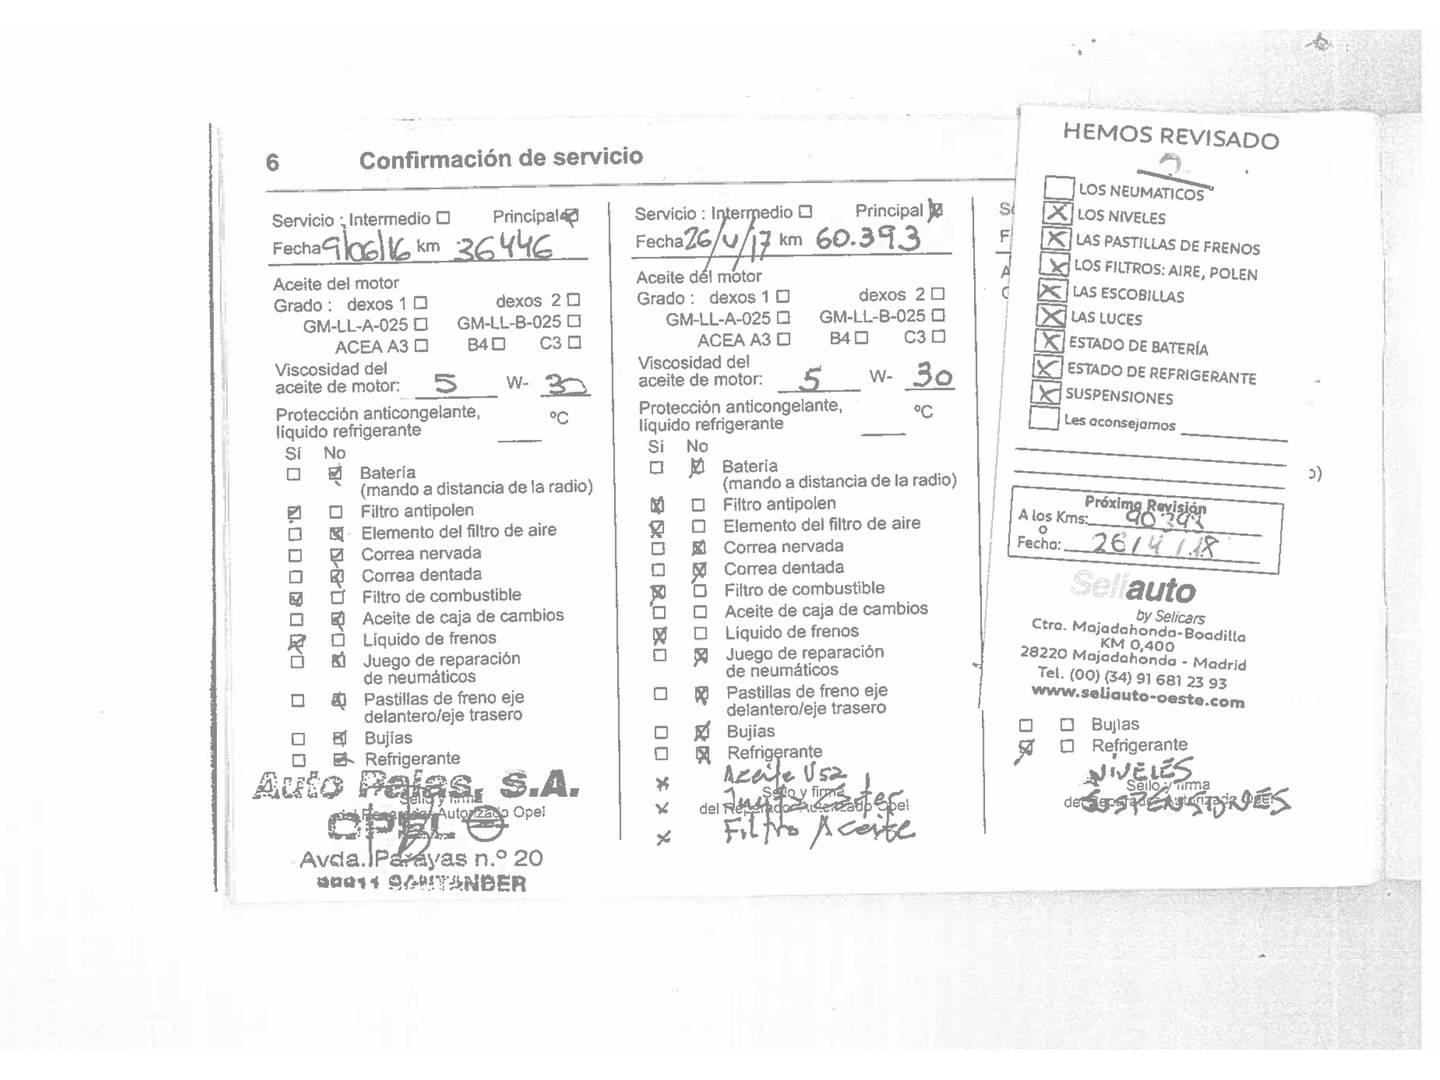 6 Confirmación de servicio
Servicio : Intermedio ☐ Principal ☒
Fecha 9/06/16 km 36446
Aceite del motor
Grado : dexos 1 ☐ dexos 2 ☐
GM-LL-A-025 ☐ GM-LL-B-025 ☐
ACEA A3 ☐ B4 ☐ C3 ☐
Viscosidad del
aceite de motor: 5 W- 30
Protección anticongelante, ºC
líquido refrigerante
Sí No
☐ ☒ Batería
(mando a distancia de la radio)
☒ ☐ Filtro antipolen
☐ ☒ Elemento del filtro de aire
☐ ☒ Correa nervada
☐ ☒ Correa dentada
☒ ☐ Filtro de combustible
☐ ☒ Aceite de caja de cambios
☒ ☐ Líquido de frenos
☐ ☒ Juego de reparación
de neumáticos
☐ ☒ Pastillas de freno eje
delantero/eje trasero
☐ ☒ Bujías
☐ ☒ Refrigerante
Auto Palas, S.A.
Sello y firma
del Reparador Autorizado Opel
OPEL
Avda. Parayas n.º 20
SANTANDER
Servicio : Intermedio ☐ Principal ☒
Fecha 26/V/17 km 60.393
Aceite del motor
Grado : dexos 1 ☐ dexos 2 ☐
GM-LL-A-025 ☐ GM-LL-B-025 ☐
ACEA A3 ☐ B4 ☐ C3 ☐
Viscosidad del
aceite de motor: 5 W- 30
Protección anticongelante, ºC
líquido refrigerante
Sí No
☐ ☒ Batería
(mando a distancia de la radio)
☒ ☐ Filtro antipolen
☒ ☐ Elemento del filtro de aire
☐ ☒ Correa nervada
☐ ☒ Correa dentada
☒ ☐ Filtro de combustible
☐ ☐ Aceite de caja de cambios
☒ ☐ Líquido de frenos
☐ ☒ Juego de reparación
de neumáticos
☐ ☒ Pastillas de freno eje
delantero/eje trasero
☐ ☒ Bujías
☐ ☒ Refrigerante
x Aceite
Sello y firma
x del Reparador Autorizado Opel
x Filtro Aceite
HEMOS REVISADO
☐ LOS NEUMATICOS
☒ LOS NIVELES
☒ LAS PASTILLAS DE FRENOS
☒ LOS FILTROS: AIRE, POLEN
☒ LAS ESCOBILLAS
☒ LAS LUCES
☒ ESTADO DE BATERÍA
☒ ESTADO DE REFRIGERANTE
☒ SUSPENSIONES
☐ Les aconsejamos
Próxima Revisión
A los Kms: 90 393
o
Fecha: 26/4/18
Seliauto
by Selicars
Ctra. Majadahonda-Boadilla
KM 0,400
28220 Majadahonda - Madrid
Tel. (00) (34) 91 681 23 93
www.seliauto-oeste.com
☐ ☐ Bujías
☒ ☐ Refrigerante
NIVELES
Sello y firma
del Reparador Autorizado Opel
SUSPENSIONES